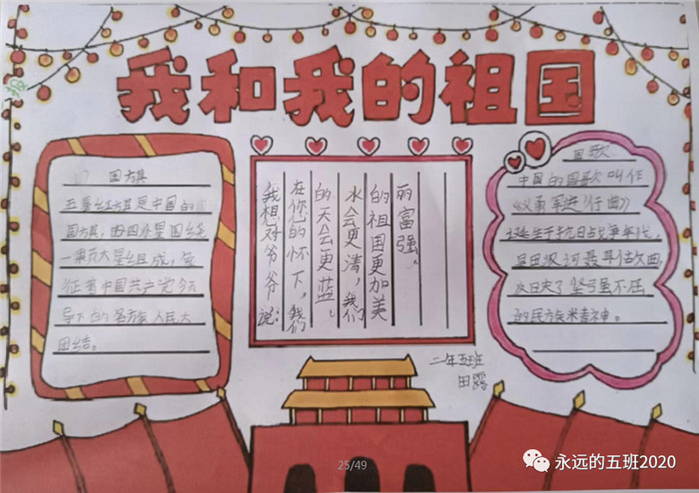 我和我的祖国
国旗
五星红旗是中国的
国旗,由四个小星围绕
一颗大星组成,象
征着中国共产党领
导下的各族人民大
团结。
我想对爷爷说:
在你的怀下,我们
的天会更蓝。
水会更清,我们
的祖国更加美
丽富强。
国歌
中国的国歌叫作
《义勇军进行曲》
诞生于抗日战争年代,
是田汉词聂耳作曲,
反日夫了坚弓虽不屈
的民方矢米青神。
二年五班
田露
25/49
永远的五班2020